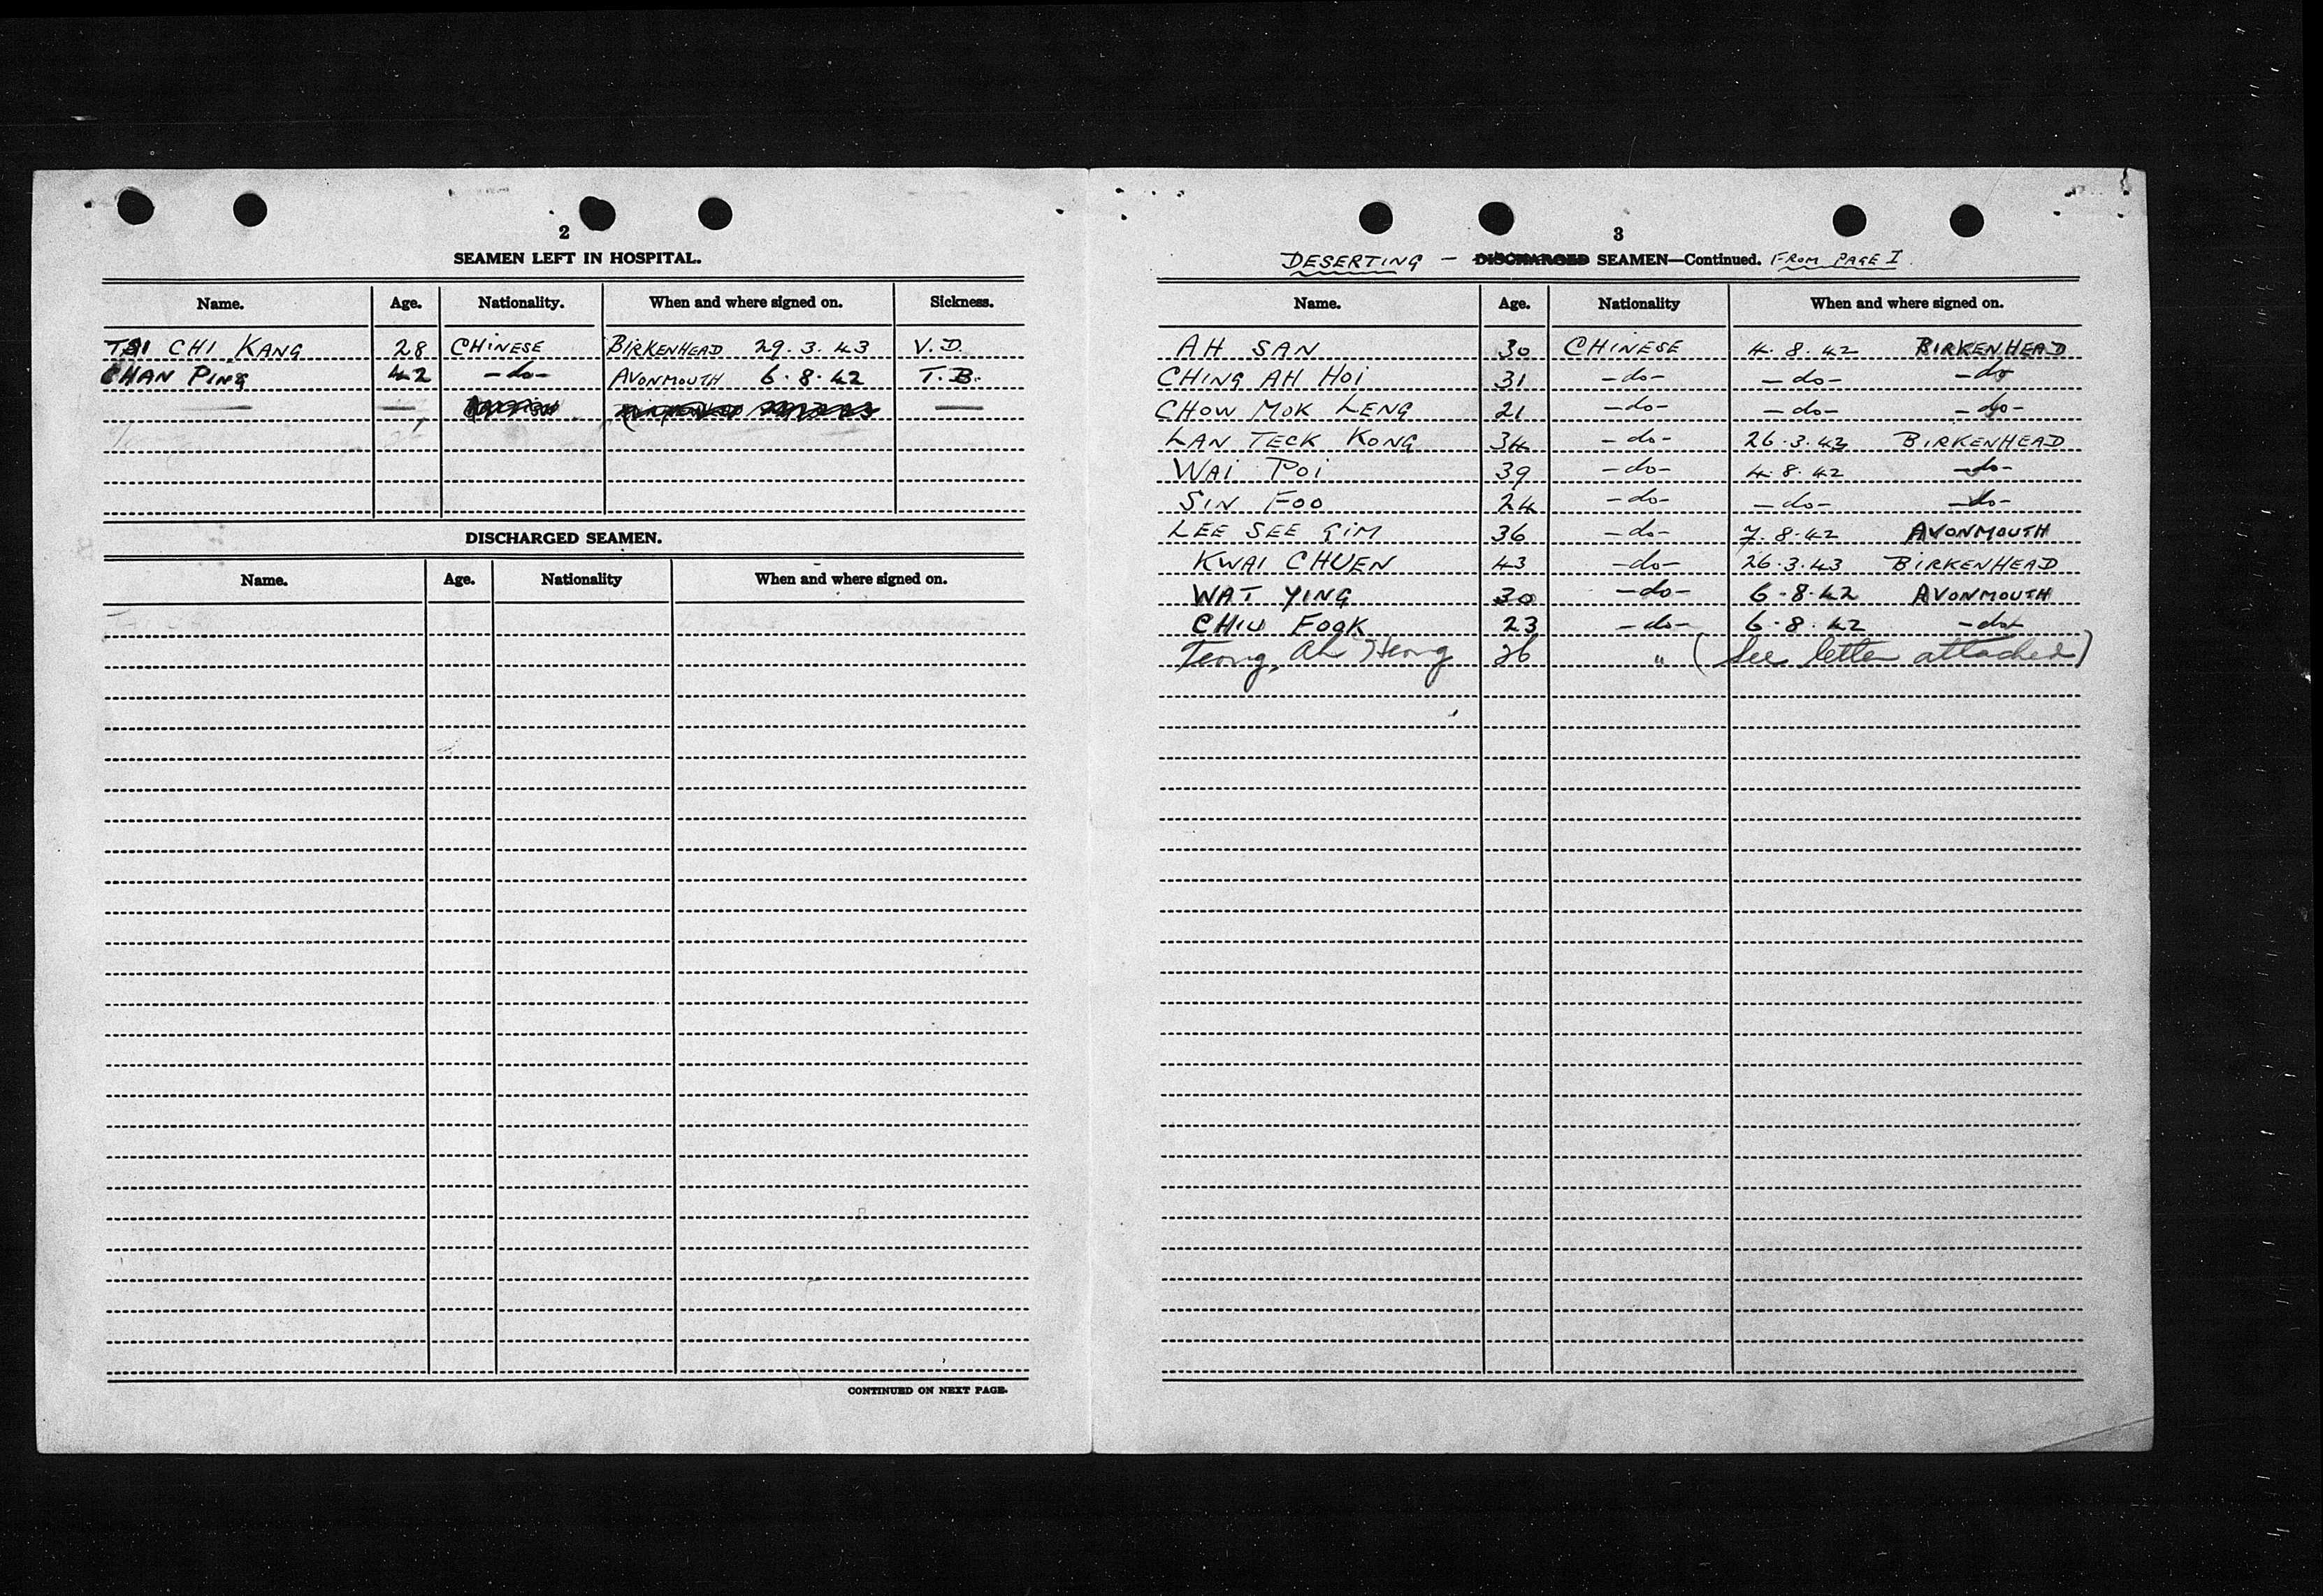 2
SEAMEN LEFT IN HOSPITAL.
Name. Age. Nationality. When and where signed on. Sickness.
TSI CHI KANG 28 CHINESE BIRKENHEAD 29.3.43 V.D.
CHAN PING 42 -do- AVONMOUTH 6.8.42 T.B.
DISCHARGED SEAMEN.
Name. Age. Nationality When and where signed on.
CONTINUED ON NEXT PAGE.
3
DESERTING - DISCHARGED SEAMEN—Continued. FROM PAGE I.
Name. Age. Nationality When and where signed on.
AH SAN 30 CHINESE 4.8.42 BIRKENHEAD
CHING AH HOI 31 -do- -do- -do-
CHOW MOK LENG 21 -do- -do- -do-
LAN TECK KONG 34 -do- 26.3.43 BIRKENHEAD
WAI POI 39 -do- 4.8.42 -do-
SIN FOO 24 -do- -do- -do-
LEE SEE GIM 36 -do- 7.8.42 AVONMOUTH
KWAI CHUEN 43 -do- 26.3.43 BIRKENHEAD
WAT YING 30 -do- 6.8.42 AVONMOUTH
CHIU FOOK 23 -do- 6.8.42 -do-
Teong, Ah Heong 26 " (See letter attached)